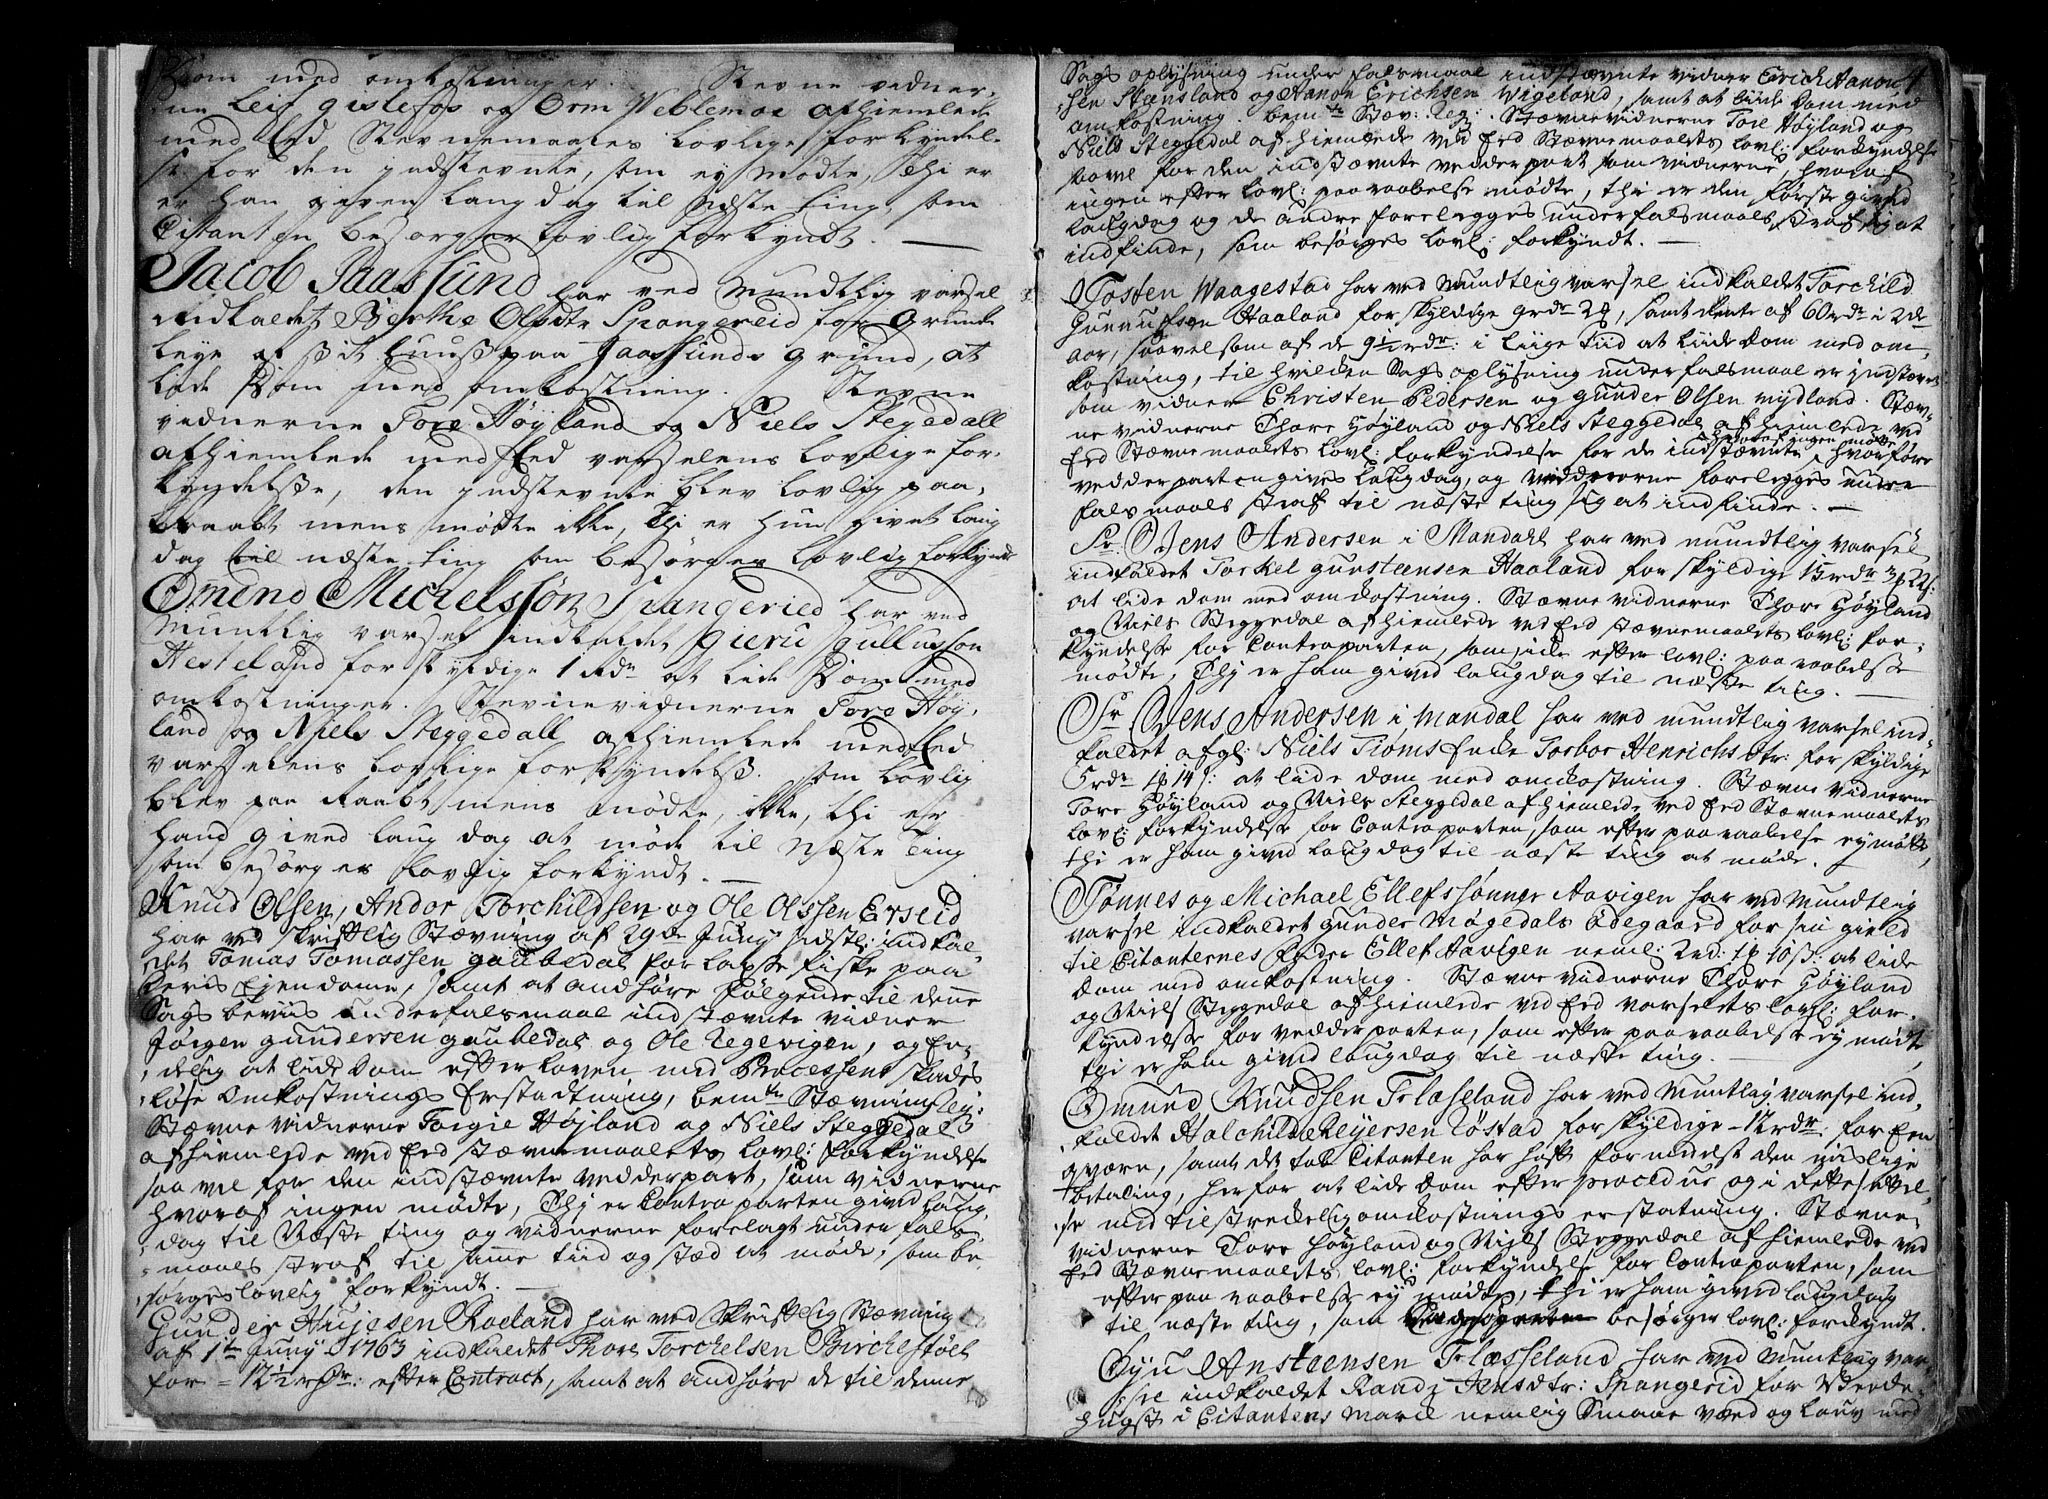 Dom med omkostninger. Stevne vidner-
ne Leif Gislefos og Orm Veblemoe afhiemlede
med Eed Stevnemaalets Lovlige forkyndel-
se for den jndstevnte, som ey mødte, Thi er
er han given Langdag til Neste ting, som
Citanten besørger Lovlig forkyndt.
Jacob Jaassund har ved Mundtlig varsel
indkaldet Berthe Olsdtr Spangereid for Grunde
leye af sit Huus paa Jaassunds grund, at
lide Dom med omkostning. Stevne
vidnerne Tore Høyland og Niels Stegedall
afhiemlede med Eed varselens Lovlige for-
kyndelse, den jndstevnte blev Lovlig paa-
raabt mens mødte ikke, Thi er hun givet Laug
dag til næste ting som besørges Lovlig forkyndt
Omund Michelssøn Spangeried har ved
Muntlig varsel indkaldet Gieru Gullusson
Hesteland for skyldige 1 Rdr at lide Dom med
omkostninger. Stevnevidnerne Tore Høy-
land og Niels Steggedall afhiemlede med Eed
varselens Lovlige forkyndelse. som Lovlig
blev paa Raabt mens mødte ikke, thi er
hand gived laug dag at møde til Næste Ting
som besørges Lovlig forkyndt.
Knud Olsen, Andor Torchildsen og Ole Olssen Erseid
har ved skriftlig Stævning af 29de Junij sidstl: indkal-
det Tomas Tomassen Gaubedal for laxse fiske paa
deris Ejendomme, samt at anhøre følgende til denne
Sags beviis under falsmaal indstævnte vidner
Jørgen Gundersen Gaubedal og Ole Regevigen, og En-
delig at lide Dom efter loven med Processens skades
løse Omkostnings Erstadtning, bemte Stævning
Stævne vidnerne Torgie Højland og Niels Steggedal
afhiemlede ved Eed stævnemaalets lovl: forkyndelse
saa vel for den indstævnte vedderpart, som vidnerne
hvoraf ingen mødte, Thj er Contra parten gived laug-
dag til Næste ting og vidnerne forelagt under fals-
maals straf til samme tiid og stæd at møde, som be-
sørges lovlig forkyndt.
Gunder Aujesen Roeland har ved Skriftlig Stævning
af 1te Junij 1763 indkaldet Thore Torchelsen Birchestøel
for 12½ rdr: efter Contract, samt at anhøre de til denne
Sags oplysning under falsmaal indstævnte vidner Erich Aanon-
sen Steensland og Aanon Erichsen Wigeland, samt at liide Dom med
omkostning. bemte Stæv: Leg: Stævnevidnerne Tore Høyland og
Niels Steggedal afhiemlede ved Eed Stævnemaalets lovl: forkyndelse
saavel for den indstævnte vedderpart som vidnerne, hvoraf
ingen efter lovl: paaraabelse mødte, thi er den første gived
laugdag og de andre forelegges under falsmaals straf sig at
indfinde, som besørges lovl: forkyndt.
Tosten Waagestad har ved Mundtlig varsel indkaldet Torchild
Gunnufsen Haaland for skyldige 9 rdr 2 , samt rente af 60 rdr i 2de
aar, saavelsom af de 9½ rdr: i liige tiid at liide Dom med om-
kostning, til hvilken Sags oplysning under falsmaal er jndstævnt
som vidner Christen Pedersen og Gunder Olsen Mydland. Stæv-
ne vidnerne Thore Høyland og Niels Steggedal afhiemlede ved
Eed Stævnemaalets lovl: forkyndelse for de indstævnte, hvoraf ingen mødte, hvorfore
vedderparten gives laugdag, og vidnerne forelegges under
falsmaals straf til næste ting sig at indfinde.
Sr. Jens Andersen i Mandahl har ved mundtlig varsel
indkaldet Torkel Gunsteensen Haaland for skyldige 15 rdr 3 22 s:
at lide dom med omkostning. Stævne vidnerne Thore Høyland
og Niels Steggedal afhiemlede ved Eed stævnemaalets lovl: for-
kyndelse for Contraparten, som icke efter lovl: paaraabelse
mødte, Thj er ham gived laugdag til næste ting.
Sr. Jens Andersen i Mandal har ved mundtlig varsel ind-
kaldet afgl: Niels Tioms Enke Torbor Henrichsdtr: for skyldige
5 rdr 1 14 s: at lide dom med omkostning. Stævne vidnerne
Tore Høyland og Niels Steggedal afhiemlede ved Eed Stævnemaalets
lovl: forkyndelse for Contraparten, som efter paaraabelse ey mødte,
thi er ham gived laugdag til næste ting at møde.
Tønnes og Michael Ellefssønner Aavigen har ved Mundtlig
varsel indkaldet Gunder Møgedals Ødegaard for sin gield
til Citanternes Fader Ellef Aavigen neml: 2 rd: 1 10 s: at lide
Dom med omkostning. Stævne vidnerne Thore Høyland
og Niels Steggedal afhiemlede ved Eed varselets lovl: for-
kyndelse for vedderparten, som efter paaraabelse ey mødte,
thi er ham gived laugdag til næste ting.
Omund Knudsen Fladseland har ved Muntlig varsel ind-
kaldet Halchild Reyersen Røstad for skyldige 12 rdr: for Een
qværn, samt det tab Citanten har havt formedelst den mislige
betaling, herfor at lide Dom efter procedur og i rettesættel-
se med tilstrekkelig omkostnings erstatning. Stævne-
vidnerne Tore Høyland og Niels Steggedal afhiemlede ved
Eed Stævnemaalets lovl: forkyndelse for Contraparten, som
efter paaraabelse ey mødte, thi er ham gived laugdag
til næste ting, som besørger lovl: forkyndt.
Gyu Ansteensen Flasseland har ved Muntlig var-
sel indkaldet Randi Jensdtr: Spangerid for Brede-
hugst i Citantens Marck nemlig Smaae væed og løuv med